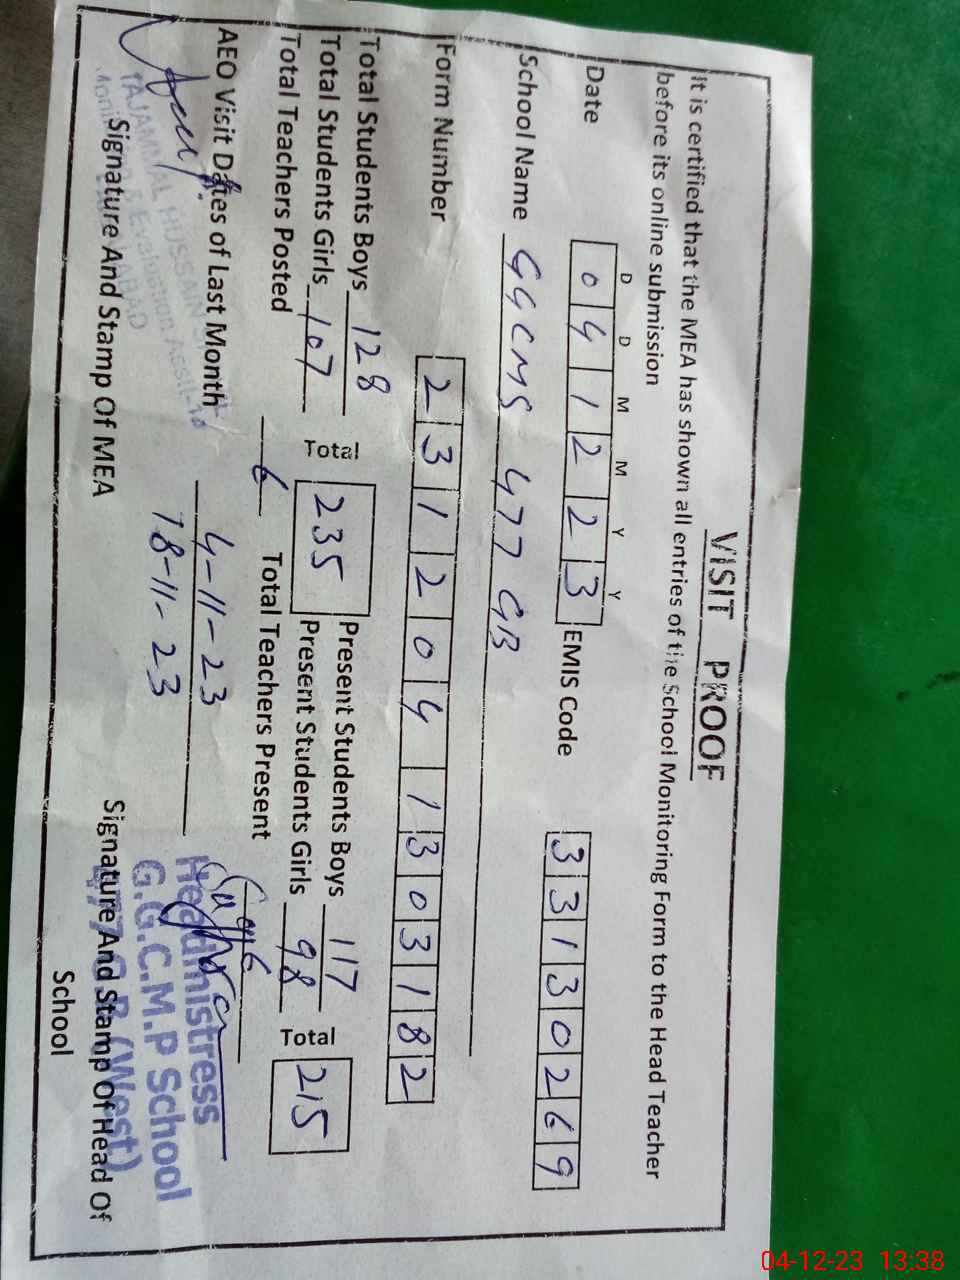 VISIT PROOF
It is certified that the MEA has shown all entries of the School Monitoring Form to the Head Teacher
before its online submission
D D M M Y Y
Date 0 4 1 2 2 3 EMIS Code 3 3 1 3 0 2 6 9
School Name GGCMS 477 GB
Form Number 2 3 1 2 0 4 1 3 0 3 1 8 2
Total Students Boys 128 Total 235 Present Students Boys 117 Total 215
Total Students Girls 107 Present Students Girls 98
Total Teachers Posted 6 Total Teachers Present 6
AEO Visit Dates of Last Month 4-11-23
18-11-23
TAJAMMAL HUSSAIN
Monitoring & Evaluation Assit-10
Headmistress
G.G.C.M.P School
477 G.B (West)
Signature And Stamp Of MEA Signature And Stamp Of Head Of
School
04-12-23 13:38